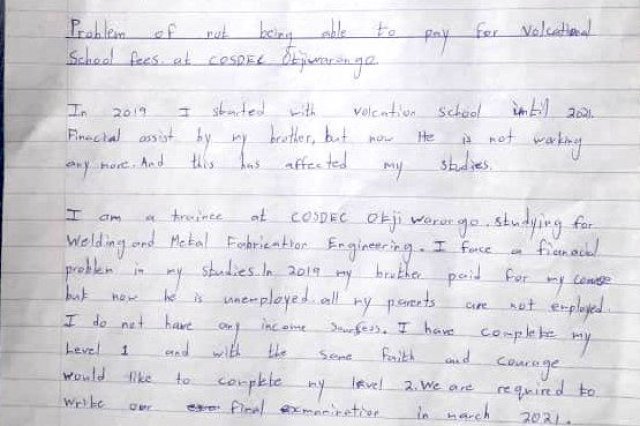 Problem of not being able to pay for Volcational
School fees. at COSDEC Otjiwarongo.
In 2019 I started with volcation school intil 2021.
Finacial assist by my brother, but now He is not working
any more. And this has affected my studies.
I am a trainee at COSDEC Otjiwarongo. studying for
Welding and Metal Fabrication Engineering. I face a fianacial
problem in my studies. In 2019 my brother paid for my course
but now he is unemployed. all my parents are not employed.
I do not have any income sourses. I have complete my
Level 1 and with the same faith and courage
would like to complete my level 2. We are required to
write our final exmanination in march 2021.